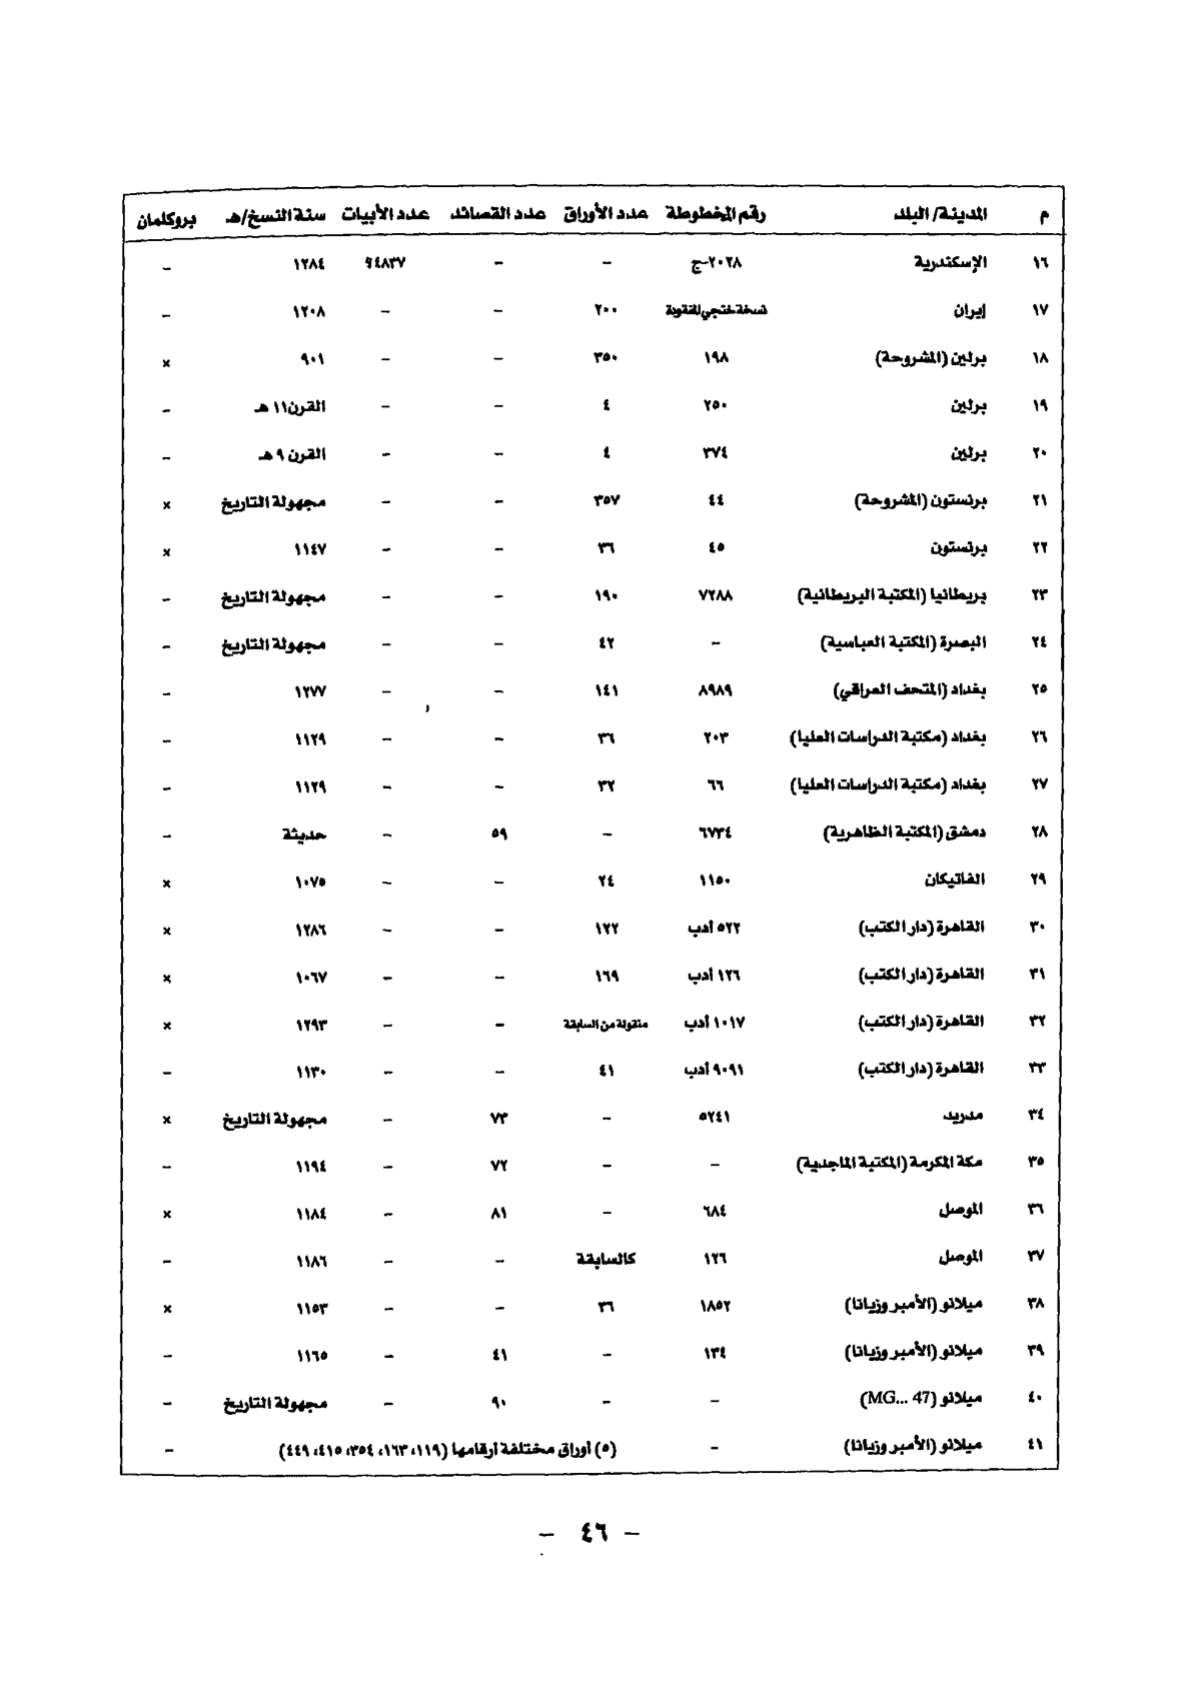 م المدينة/ البلد رقم المخطوطة عدد الأوراق عدد القصائد عدد الأبيات سنة النسخ/هـ بروكلمان
١٦ الإسكندرية ٢٠٢٨-ج – – ٩٤٨٣٧ ١٢٨٤ –
١٧ إيران ٢٠٠ – – ١٢٠٨ –
١٨ برلين (المشروحة) ١٩٨ ٣٥٠ – – ٩٠١ ×
١٩ برلين ٢٥٠ ٤ – – القرن١١ هـ –
٢٠ برلين ٣٧٤ ٤ – – القرن ٩ هـ –
٢١ برنستون (المشروحة) ٤٤ ٣٥٧ – – مجهولة التاريخ ×
٢٢ برنستون ٤٥ ٣٦ – – ١١٤٧ ×
٢٣ بريطانيا (المكتبة البريطانية) ٧٢٨٨ ١٩٠ – – مجهولة التاريخ –
٢٤ البصرة (المكتبة العباسية) – ٤٢ – – مجهولة التاريخ –
٢٥ بغداد (المتحف العراقي) ٨٩٨٩ ١٤١ – – ١٢٧٧ –
٢٦ بغداد (مكتبة الدراسات العليا) ٢٠٣ ٣٦ – – ١١٢٩ –
٢٧ بغداد (مكتبة الدراسات العليا) ٦٦ ٣٢ – – ١١٢٩ –
٢٨ دمشق (المكتبة الظاهرية) ٦٧٣٤ – ٥٩ – حديثة –
٢٩ الفاتيكان ١١٥٠ ٢٤ – – ١٠٧٥ ×
٣٠ القاهرة (دار الكتب) ٥٢٢ أدب ١٢٢ – – ١٢٨٦ ×
٣١ القاهرة (دار الكتب) ١٢٦ أدب ١٦٩ – – ١٠٦٧ ×
٣٢ القاهرة (دار الكتب) ١٠١٧ أدب منقولة من السابقة – – ١٢٩٣ ×
٣٣ القاهرة (دار الكتب) ٩٠٩١ أدب ٤١ – – ١١٣٠ –
٣٤ مدريد ٥٢٤١ – ٧٣ – مجهولة التاريخ ×
٣٥ مكة المكرمة (المكتبة الماجدية) – – ٧٢ – ١١٩٤ –
٣٦ الموصل ٦٨٤ – ٨١ – ١١٨٤ ×
٣٧ الموصل ١٢٦ كالسابقة – – ١١٨٦ –
٣٨ ميلانو (الأمبروزيانا) ١٨٥٢ ٣٦ – – ١١٥٣ ×
٣٩ ميلانو (الأمبروزيانا) ١٣٤ – ٤١ – ١١٦٥ –
٤٠ ميلانو (MG... 47) – – ٩٠ – مجهولة التاريخ –
٤١ ميلانو (الأمبروزيانا) – (٥) أوراق مختلفة أرقامها (١١٩، ١٦٣، ٣٥٤، ٤١٥، ٤٤٩) –
– ٤٦ –